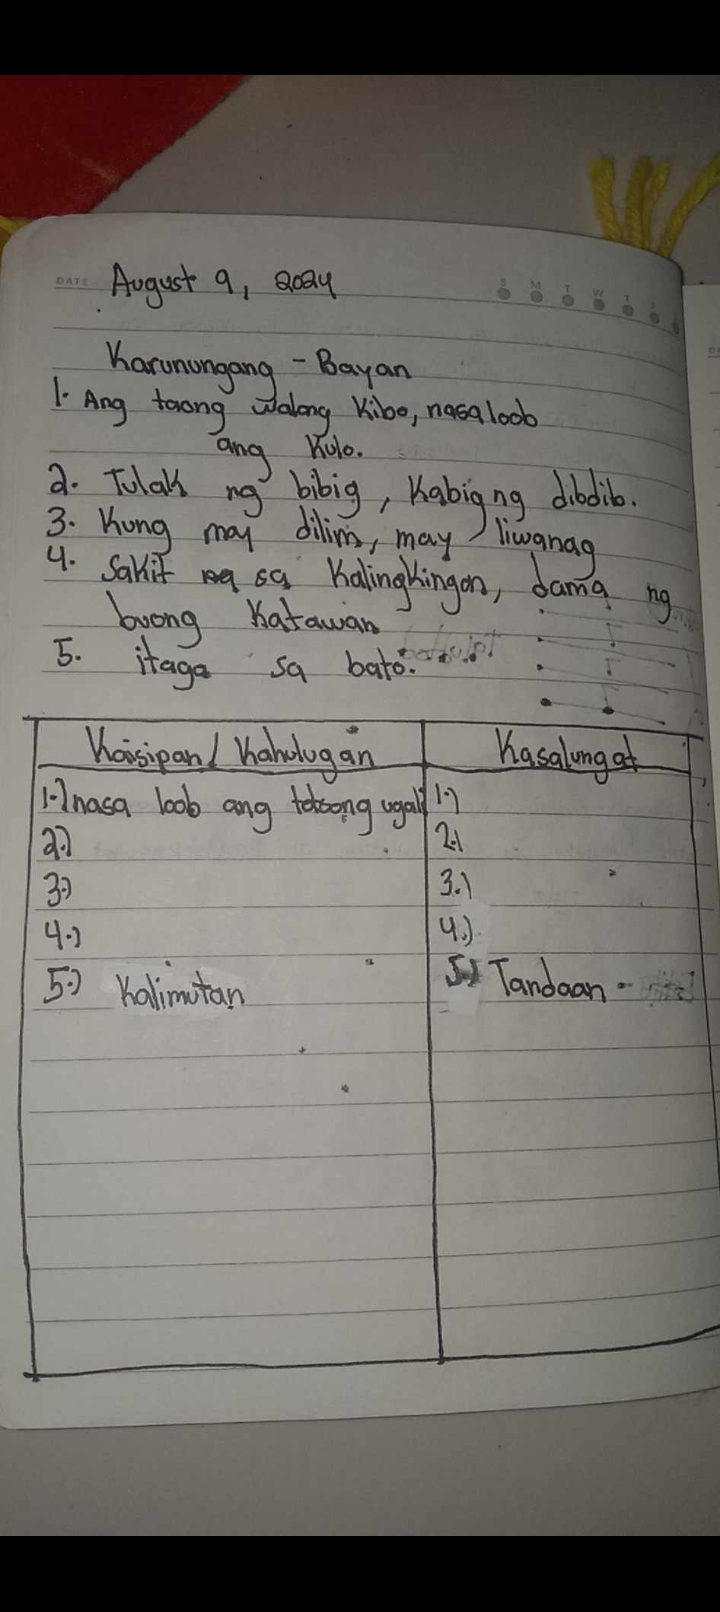 DATE August 9, 2024
S M T W T F
Karunungang - Bayan
1. Ang taong walang kibo, nasa loob
ang kulo.
2. Tulak ng bibig, kabig ng dibdib.
3. Kung may dilim, may liwanag
4. Sakit sa kalingkingan, dama ng
buong katawan
5. itaga sa bato.
Kaisipan / Kahulugan
Kasalungat
1.) nasa loob ang totoong ugali
1.)
2.)
2.)
3.)
3.)
4.)
4.)
5.) Kalimutan
5.) Tandaan -